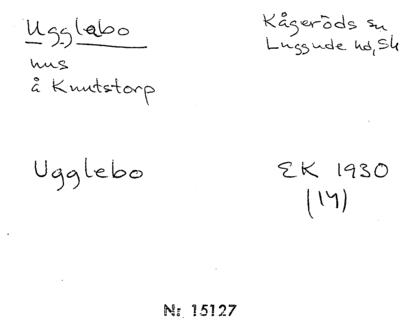 Ugglebo
hus
å Knutstorp
Kågeröds sn
Luggude hd, Sk
Ugglebo
EK 1930
(14)
Nr 15127